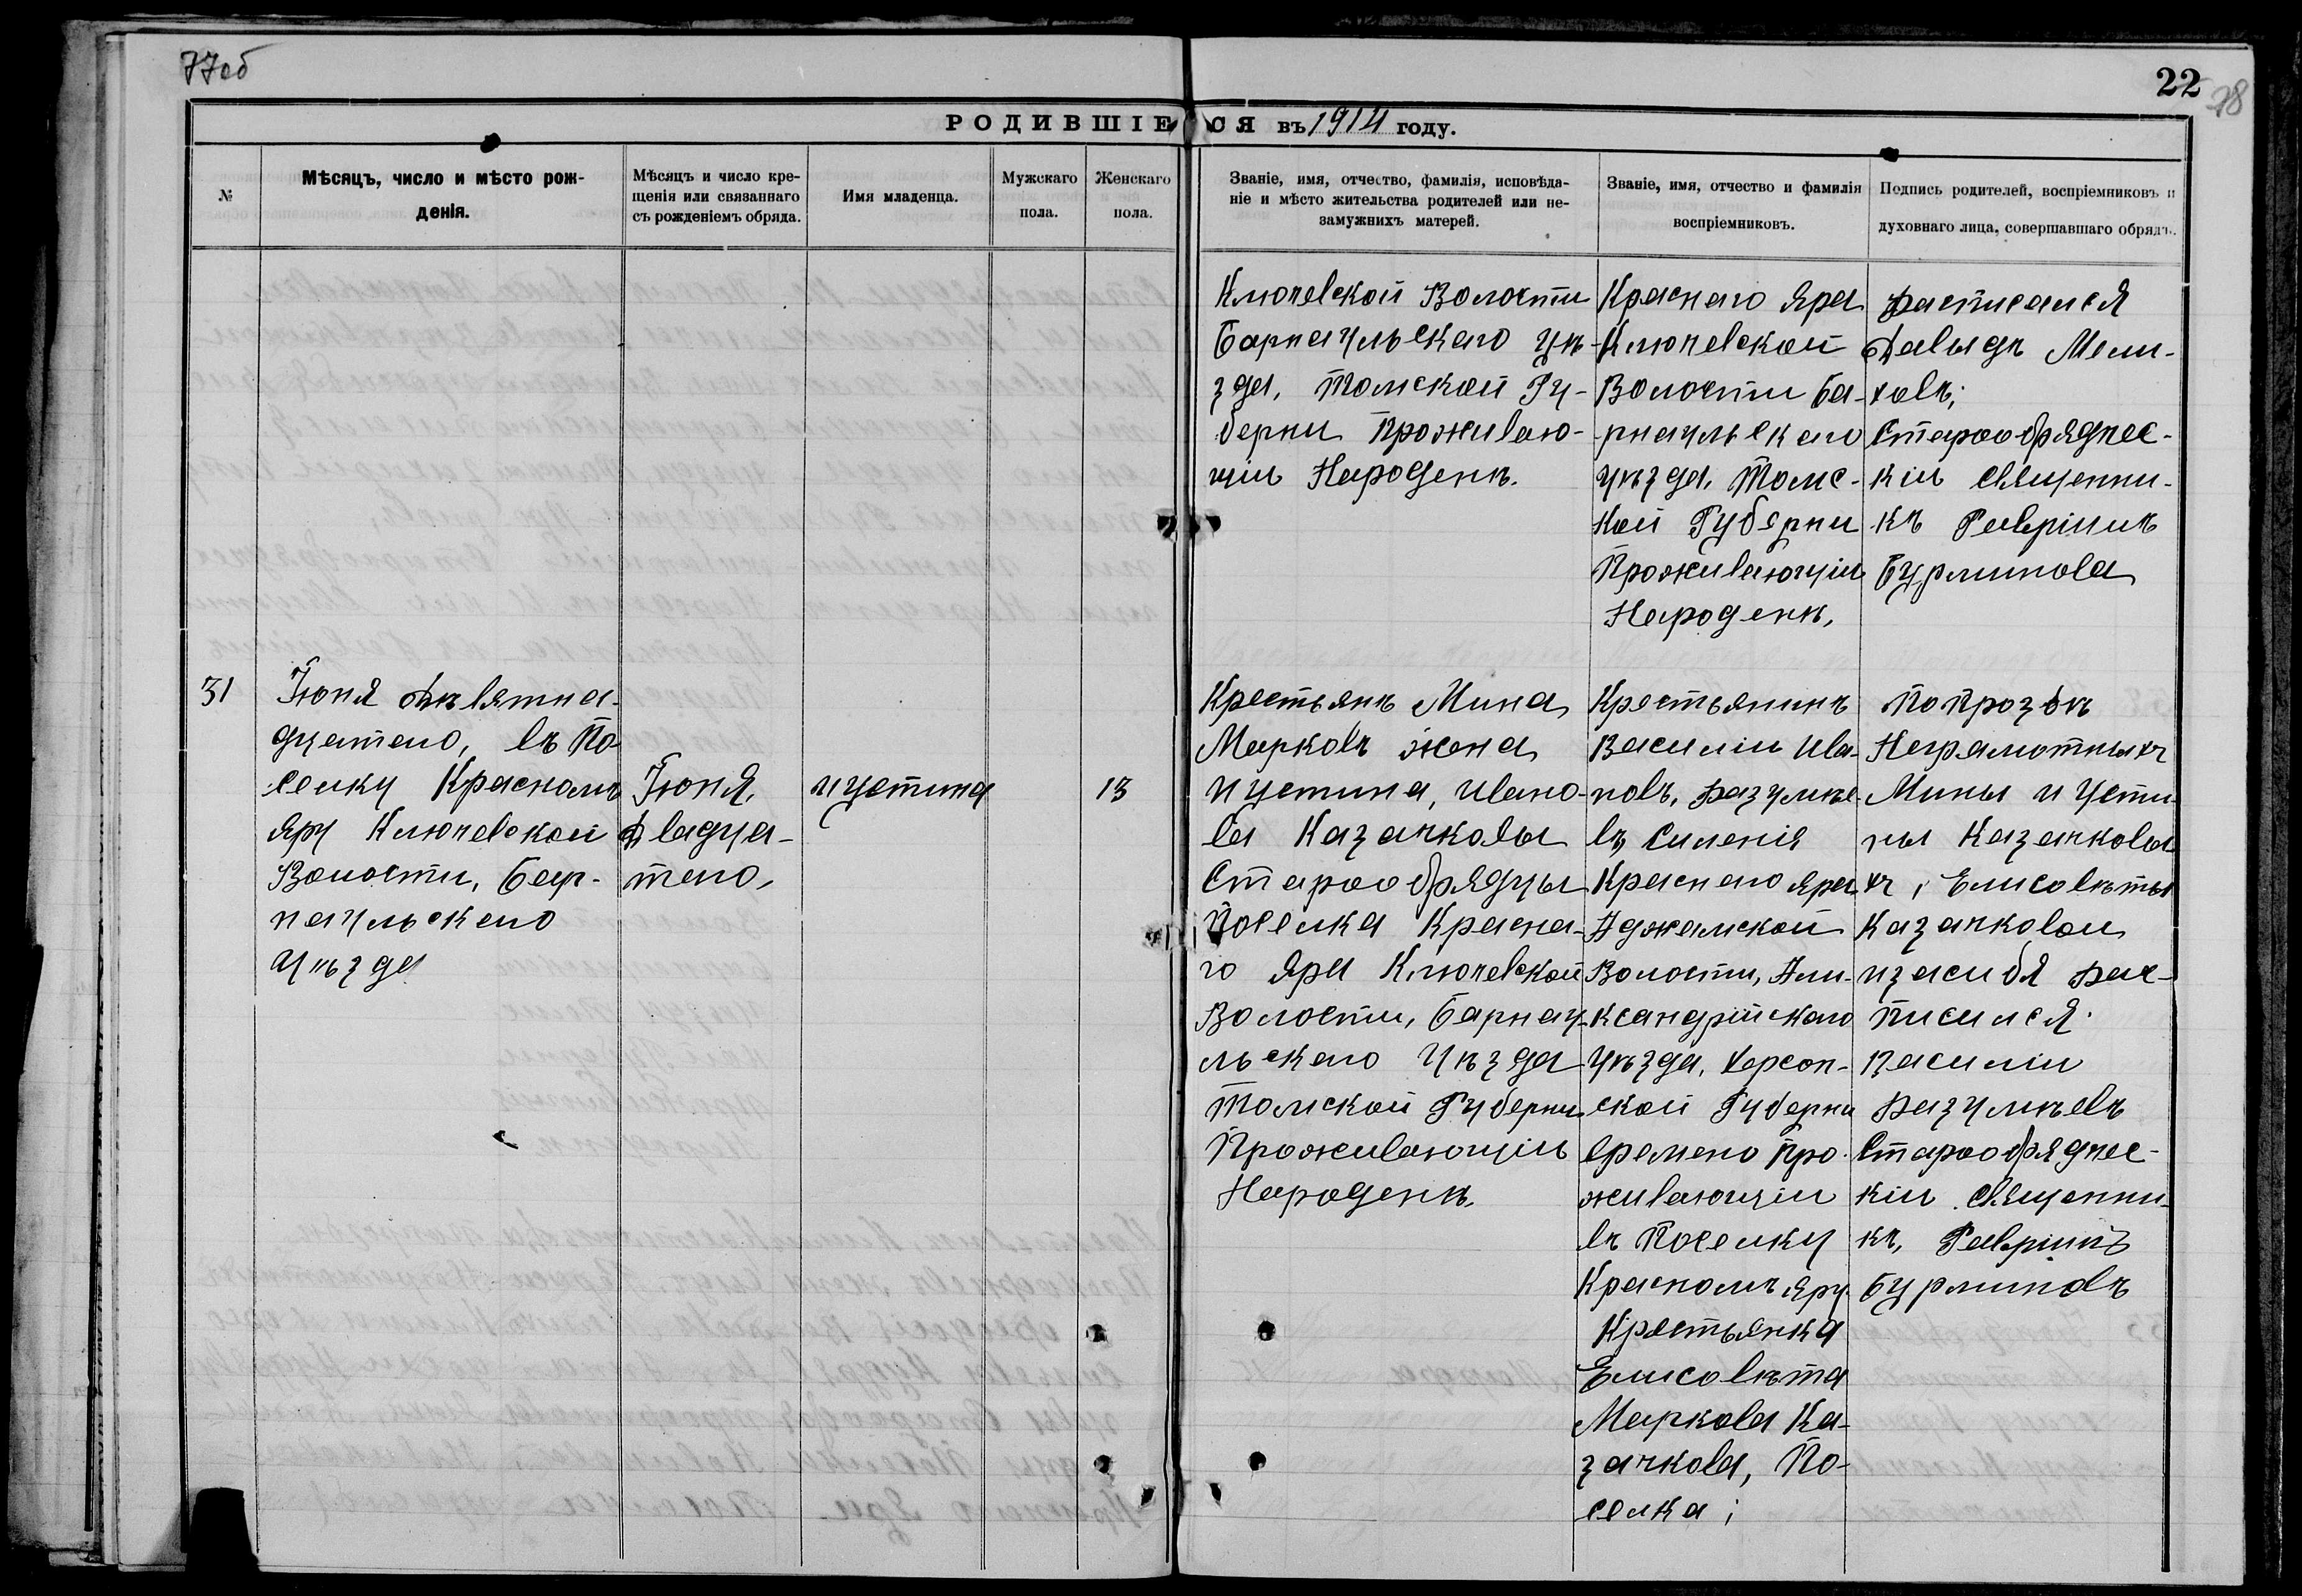 77об
22
78
РОДИВШІЕСЯ въ 1914 году.
№
Мѣсяцъ, число и мѣсто рож-
денія.
Мѣсяцъ и число кре-
щенія или связаннаго
съ рожденіемъ обряда.
Имя младенца.
Мужскаго
пола.
Женскаго
пола.
Званіе, имя, отчество, фамилія, исповѣда-
ніе и мѣсто жительства родителей или не-
замужнихъ матерей.
Званіе, имя, отчество и фамилія
воспріемниковъ.
Подпись родителей, воспріемниковъ и
духовнаго лица, совершавшаго обрядъ.
Ключевской Волости
Барнаульскаго уѣ-
зда, Томской Гу-
берни Проживаю-
щіи Народенъ.
Краснаго Яра
Ключевской
Волости Ба-
рнаульскаго
уѣзда, Томс-
кой Губерни
Проживающіи
Народенъ,
расписался
Давыдъ Мели-
ховъ;
Старообрядчес-
кіи священни-
къ Гавріилъ
Бурминова
31
Іюня дѣвятна-
дцатаго, въ По-
селку Красномъ
Яру Ключевской
Волости, Бар-
наульскаго
Уѣзда
Іюня,
двадца-
таго,
иустина
13
Крестьянъ Мина
Марковъ жена
иустина, ивано-
ва Казачковы
Старообрядцы
Поселка Красна-
го Яра Ключевской
Волости, Барнау-
льскаго Уѣзда
Томской Губерни
Проживающіи
Народенъ.
Крестьянинъ
Василіи ива-
новъ, разумѣе-
въ силенія
Краснаго яра
Аджамской
Волости, Али-
ксандрійскаго
уѣзда, херсон-
ской Губерни
времено про-
живающіи
въ Поселку
Красномъ яру
Крестьянка
Елисовѣта
Маркова Ка-
зачкова, По-
селка;
Попрозбѣ
Неграмотныхъ
Мины и Усти-
ны Казачковы
хъ, Елисовѣты
Казачковои
изасибя рас-
писился.
Василіи
Разумѣевъ
Старообрядчес-
кіи священни-
къ, Гавріилъ
Бурминовъ